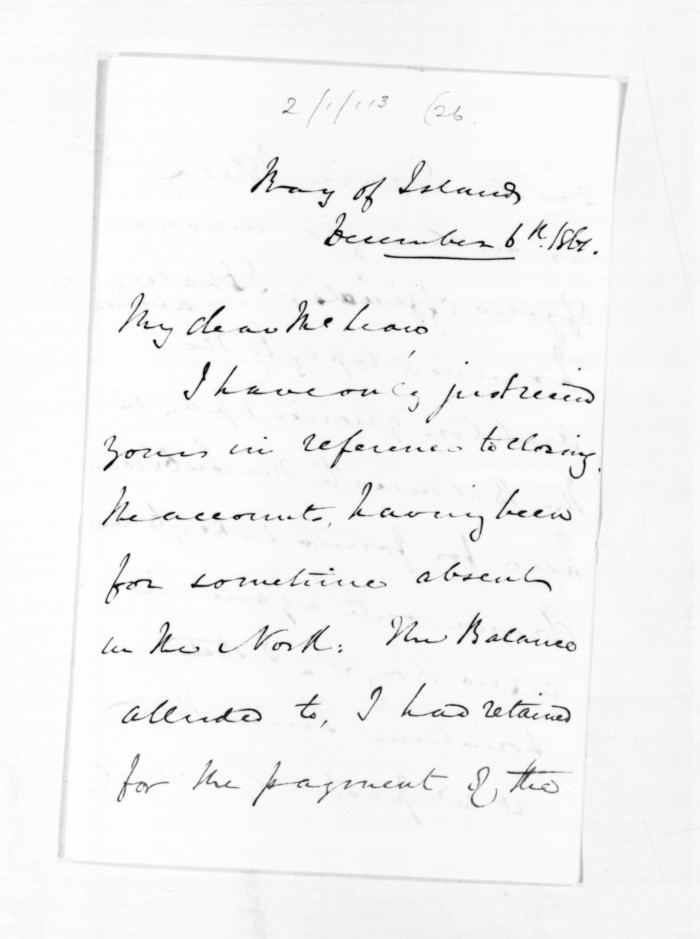 2/1/113 (26.
Bay of Islands
December 6th. 1861.
My dear McLean
I have only just received
yours in reference to closing
the accounts, having been
for sometime absent
in the North: The Balance
alluded to, I had retained
for the payment of the